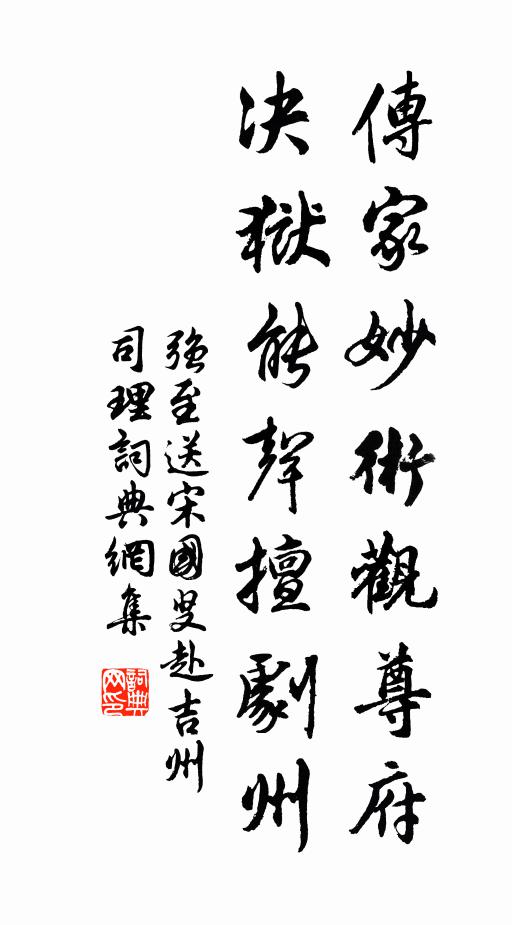 傳家妙術觀尊府
決獄能聲擅劇州
強至送宋國叟赴吉州
司理詞典網集
詞典网印